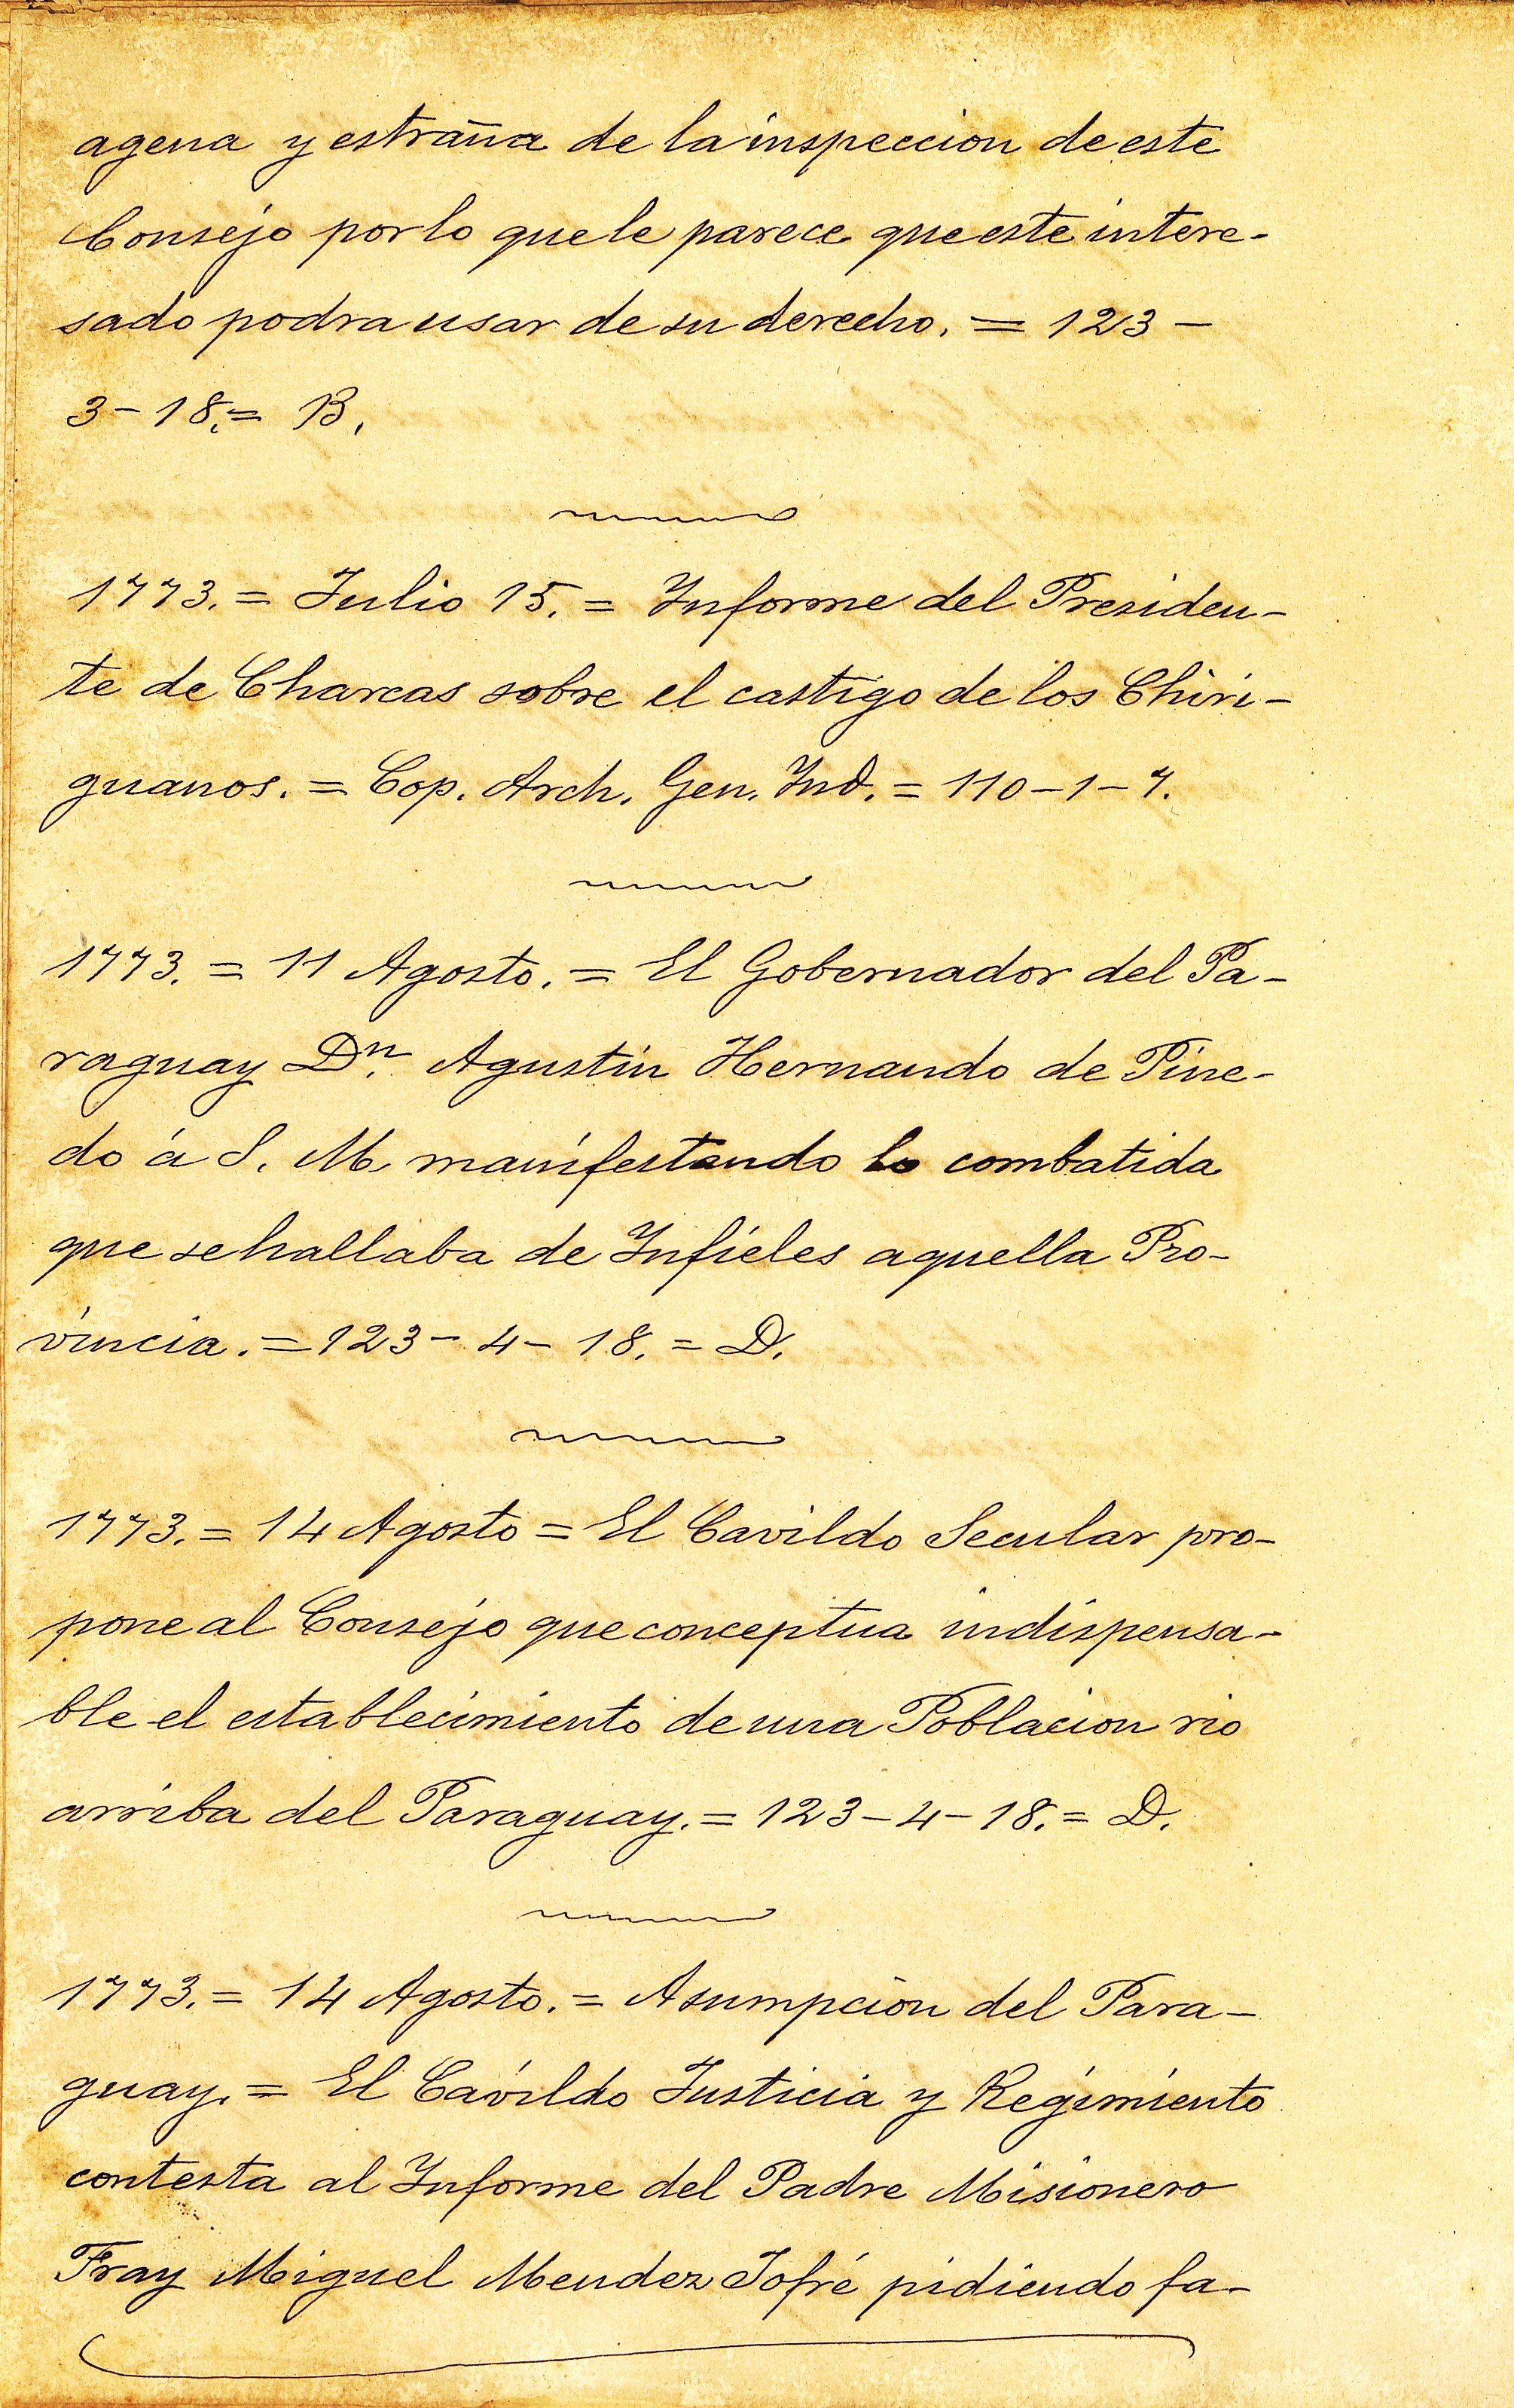 agena y estraña de la inspeccion de este
Consejo por lo que le parece que este intere-
sado podra usar de su derecho. = 123 -
3 - 18. = B.
1773. = Julio 15. = Informe del Presiden-
te de Charcas sobre el castigo de los Chiri-
guanos. = Cop. Arch. Gen. Ind. = 110 - 1 - 7.
1773. = 11 Agosto. = El Gobernador del Pa-
raguay Dn. Agustin Hernando de Pine-
do á S. M. manifestando lo combatida
que se hallaba de Infieles aquella Pro-
vincia. = 123 - 4 - 18. = D.
1773. = 14 Agosto = El Cavildo Secular pro-
pone al Consejo que conceptua indispensa-
ble el establecimiento de una Poblacion rio
arriba del Paraguay. = 123 - 4 - 18. = D.
1773. = 14 Agosto. = Asumpcion del Para-
guay. = El Cavildo Justicia y Regimiento
contesta al Informe del Padre Misionero
Fray Miguel Mendez Jofré pidiendo fa-